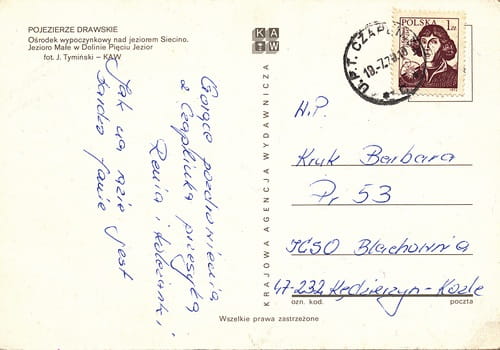 POJEZIERZE DRAWSKIE
Ośrodek wypoczynkowy nad jeziorem Siecino.
Jezioro Małe w Dolinie Pięciu Jezior
fot. J. Tymiński – KAW
Gorące pozdrowienia
z Czaplinka przesyłą
Renia i
Jak na razie
bardzo fanie jest
KAW
KRAJOWA AGENCJA WYDAWNICZA
POLSKA 1zł
U.P.T. CZAPL
18.-7.78.10
W.P.
Kruk Barbara
Pr 53
ICSO Blachownia
47-232 Kędzierzyn-Koźle
ozn. kod. poczta
Wszelkie prawa zastrzeżone